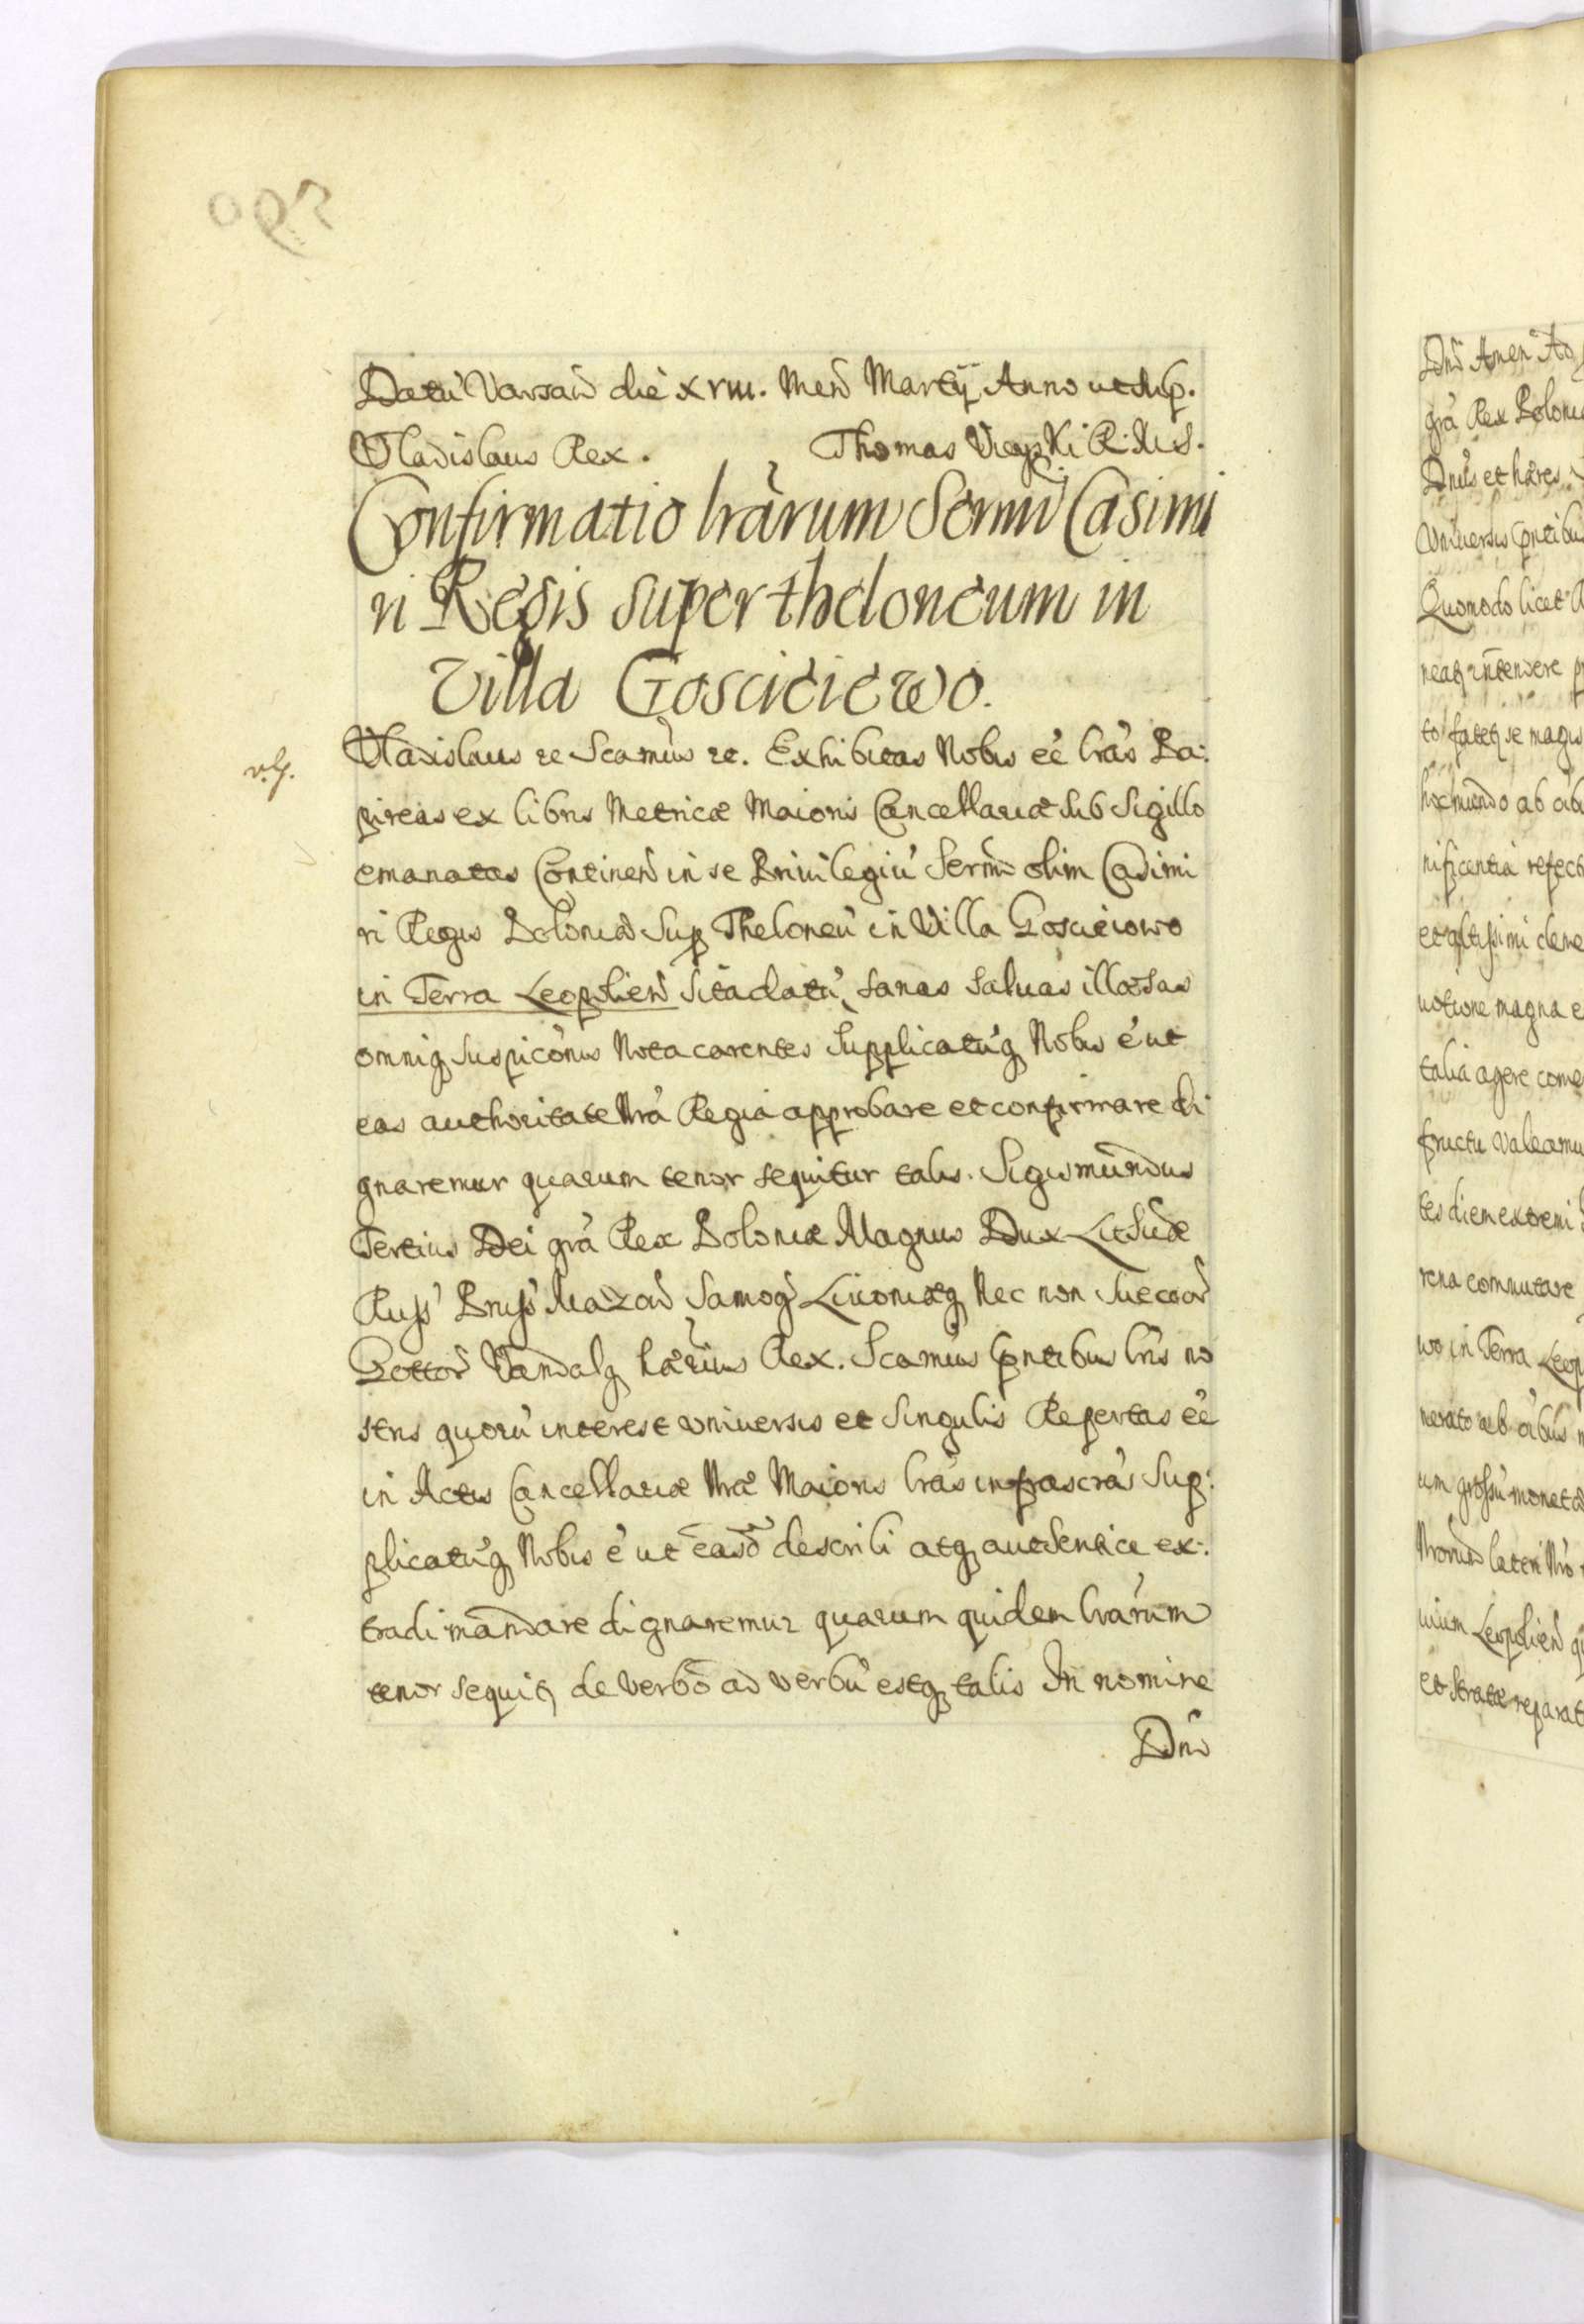 Datū Varsav̄ die xviii. Men̄ Martij Anno ut sup.
Vladislaus Rex. Thomas R. M. S.
Confirmatio lrārum Sermi Casimi
ri Regis super theloneum in
Villa Gosciciewo.
Vladislaus etc Scamus etc. Exhibitas Nobis eē lrās Pa:
pireas ex libris Metricæ Maioris Cancellariæ sub Sigillo
emanatas Continen̄ in se Priuilegiū Serm̄i olim Casimi
ri Regis Poloniæ Sup Theloneū in Villa Gosciciowo
in Terra Leopolien̄ sita datū, sanas saluas illæsas
omniq suspicōnis nota carentes supplicatūq Nobis ē ut
eas authoritate Nrā Regia approbare et confirmare di
gnaremur quarum tenor sequitur talis. Sigismundus
Tertius Dei grā Rex Poloniæ Magnus Dux Lithuæ
Russ Pruss Mazov̄ Samog Liuoniæq Nec non Suecor̄
Gottor̄ Vandalq hærius Rex. Scamus pntibus lris no
stris quorū interest vniuersis et Singulis Repertas eē
in Actis Cancellariæ Nræ Maioris lrās infrascrās Sup:
plicatūq Nobis ē ut easd describi atq authentice ex:
tradi mandare dignaremur quarum quidem lrārum
tenor sequitq de verbo ad verbū estq talis In nomine
Dn̄i
Dn̄i Amen
grā Rex Poloniæ
Dnūs et hæres
Vniuersis pntibus
Quomodo licet
intendere
to fatetq se magis
mundo ab
nificentia refect
et altissimi cleme
uotione magna e
talia agere come
fructu Valeamu
tes diem extremi
rena commutare
wo in Terra Leop
nerato ab oībus
um grossū monetæ
lateri Nro
uium Leopolien̄
et stratæ reparat